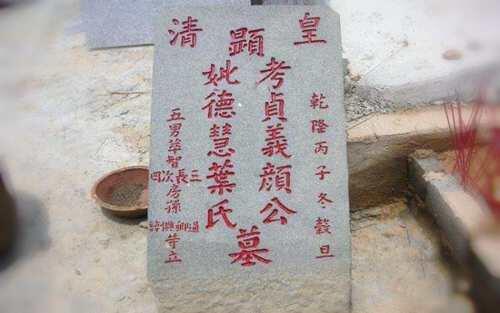 皇清
顯
乾隆丙子冬穀旦
考貞義顏公
妣德慧葉氏
墓
三長次四
房孫
五男華智
等立